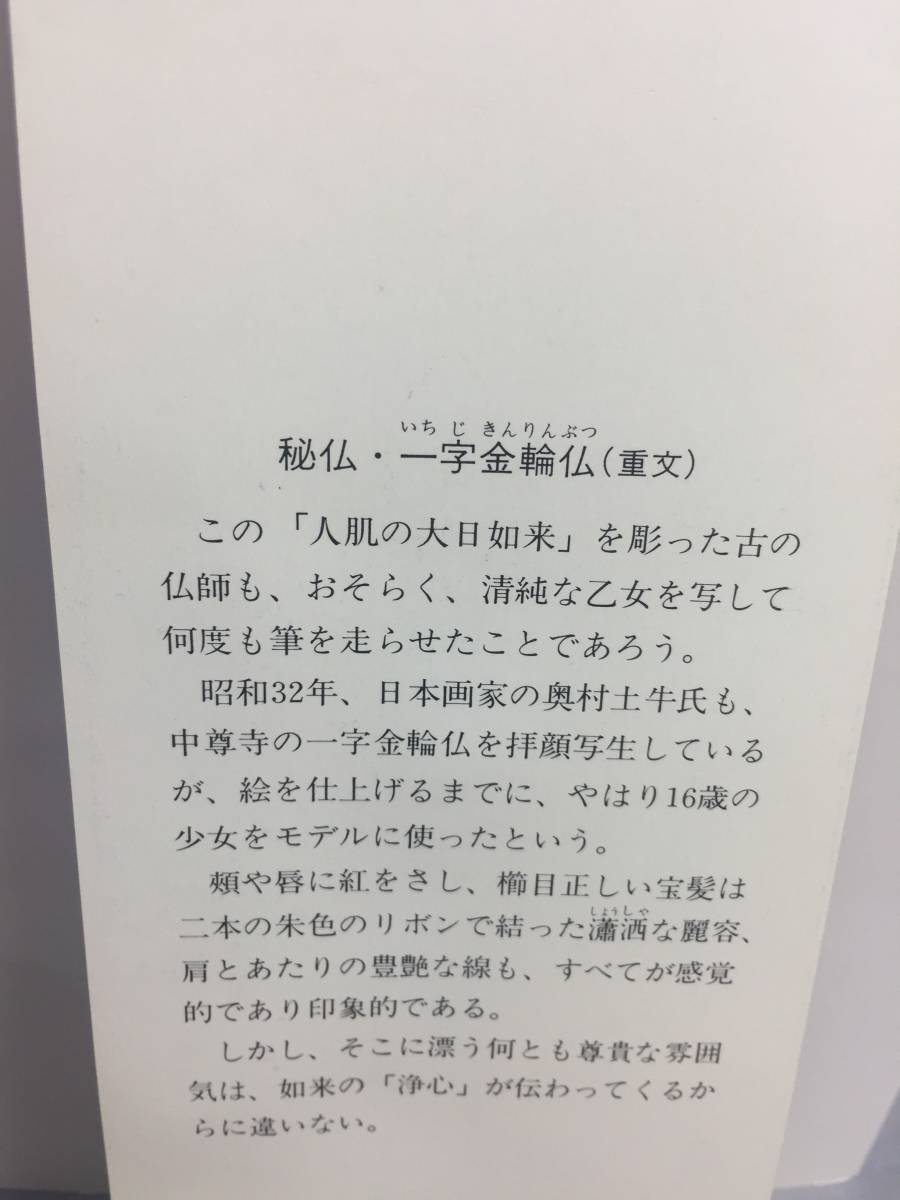 いちじきんりんぶつ
秘仏・一字金輪仏(重文)
この「人肌の大日如来」を彫った古の
仏師も、おそらく、清純な乙女を写して
何度も筆を走らせたことであろう。
昭和32年、日本画家の奥村土牛氏も、
中尊寺の一字金輪仏を拝顔写生している
が、絵を仕上げるまでに、やはり16歳の
少女をモデルに使ったという。
頰や唇に紅をさし、櫛目正しい宝髪は
しょうしゃ
二本の朱色のリボンで結った瀟洒な麗容、
肩とあたりの豊艶な線も、すべてが感覚
的であり印象的である。
しかし、そこに漂う何とも尊貴な雰囲
気は、如来の「浄心」が伝わってくるか
らに違いない。